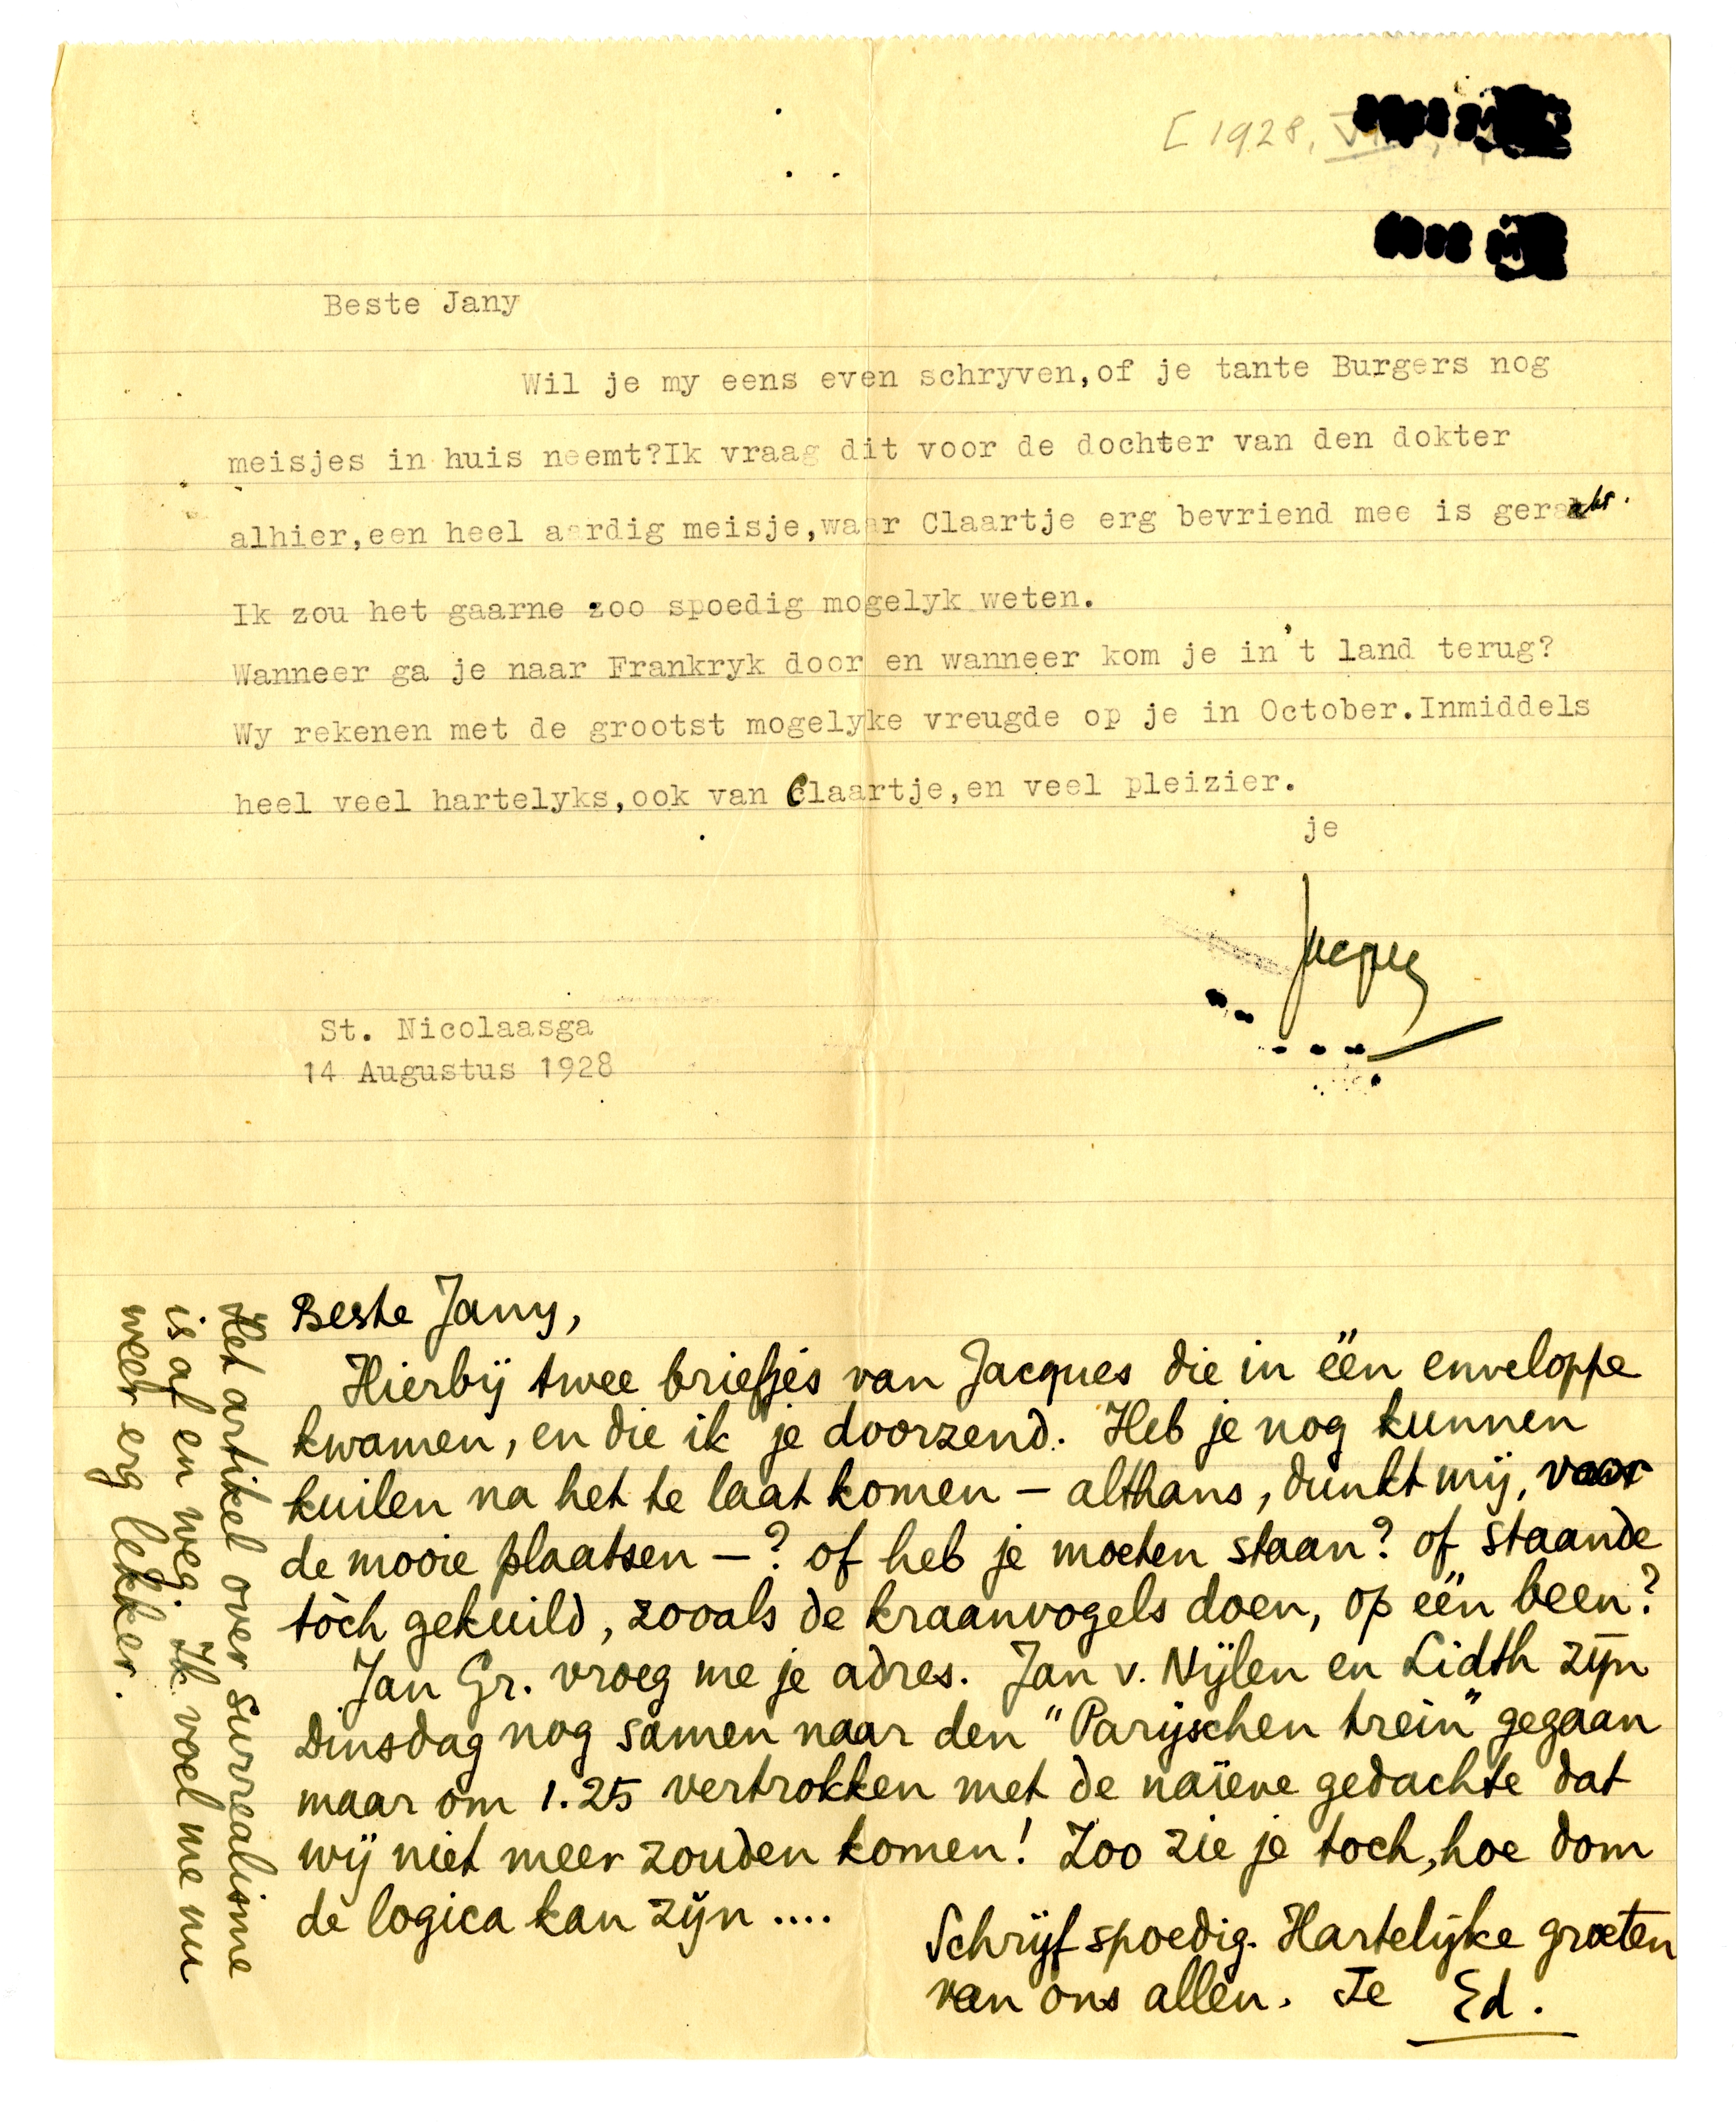 [1928,
Beste Jany
Wil je my eens even schryven,of je tante Burgers nog
meisjes in huis neemt?Ik vraag dit voor de dochter van den dokter
alhier,een heel aardig meisje,waar Claartje erg bevriend mee is geraakt.
Ik zou het gaarne zoo spoedig mogelyk weten.
Wanneer ga je naar Frankryk door en wanneer kom je in 't land terug?
Wy rekenen met de grootst mogelyke vreugde op je in October.Inmiddels
heel veel hartelyks,ook van Claartje,en veel pleizier.
je
Jacques
St. Nicolaasga
14 Augustus 1928
Beste Jany,
Hierbij twee briefjes van Jacques die in één enveloppe
kwamen, en die ik je doorzend. Heb je nog kunnen
kuilen na het te laat komen – althans, dunkt mij, voor
de mooie plaatsen – ? of heb je moeten staan? of staande
tòch gekuild, zooals de kraanvogels doen, op één been?
Jan Gr. vroeg me je adres. Jan v. Nijlen en Lidth zijn
Dinsdag nog samen naar den "Parijschen trein" gegaan
maar om 1.25 vertrokken met de naïeve gedachte dat
wij niet meer zouden komen! Zoo zie je toch, hoe dom
de logica kan zijn ....
Schrijf spoedig. Hartelijke groeten
van ons allen. Je Ed.
Het artikel over surrealisme
is af en weg. Ik voel me nu
weer erg lekker.